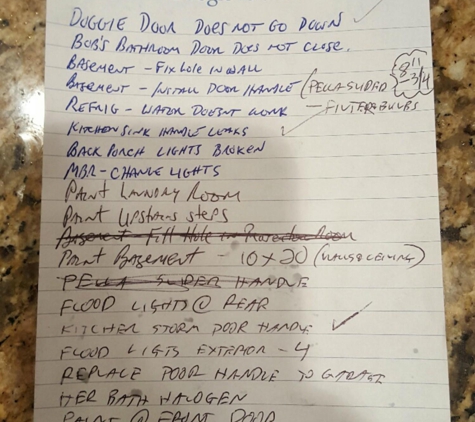 DOGGIE DOOR DOES NOT GO DOWN
BOB'S BATHROOM DOOR DOES NOT CLOSE.
BASEMENT - FIX HOLE IN WALL
BASEMENT - INSTALL DOOR HANDLE (PELLA SLIDER 8" 3/4
REFRIG - WATER DOESNT WORK - FILTER & BULBS
KITCHEN SINK HANDLE LEAKS
BACK PORCH LIGHTS BROKEN
MBR - CHANGE LIGHTS
PAINT LAUNDRY ROOM
PAINT UPSTAIRS STEPS
BASEMENT - FILL HOLE IN ROOM
PAINT BASEMENT - 10 X 20 (WALLS & CEILING)
PELLA SLIDER HANDLE
FLOOD LIGHTS @ REAR
KITCHEN STORM DOOR HANDLE
FLOOD LIGTS EXTERIOR - 4
REPLACE DOOR HANDLE TO GARAGE
HER BATH HALOGEN
PAINT @ FRONT DOOR